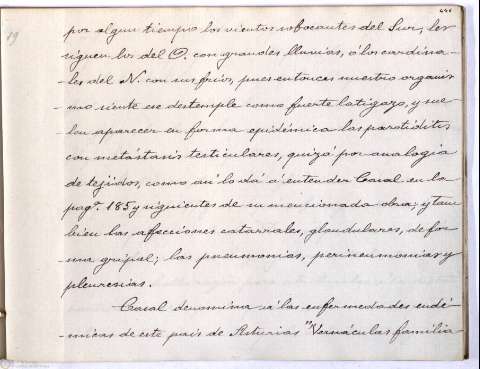 19
por algun tiempo los vientos sofocantes del Sur, les
siguen los del O. con grandes lluvias, ó los cardina-
les del N. con sus fríos, pues entonces nuestro organis
mo siente ese destemple como fuerte latigazo, y sue
len aparecer en forma epidémica las parotiditis
con metástasis testiculares, quizá por analogia
de tejidos, como asi lo dá á entender Casal en la
pagª. 185 y siguientes de su mencionada obra; y tam
bien las afecciones catarrales, glandulares, de for
ma gripal; las pneumonias, perineumonias y
pleuresias.
Casal denomina á las enfermedades endé-
micas de este país de Asturias "Vernáculas familia-